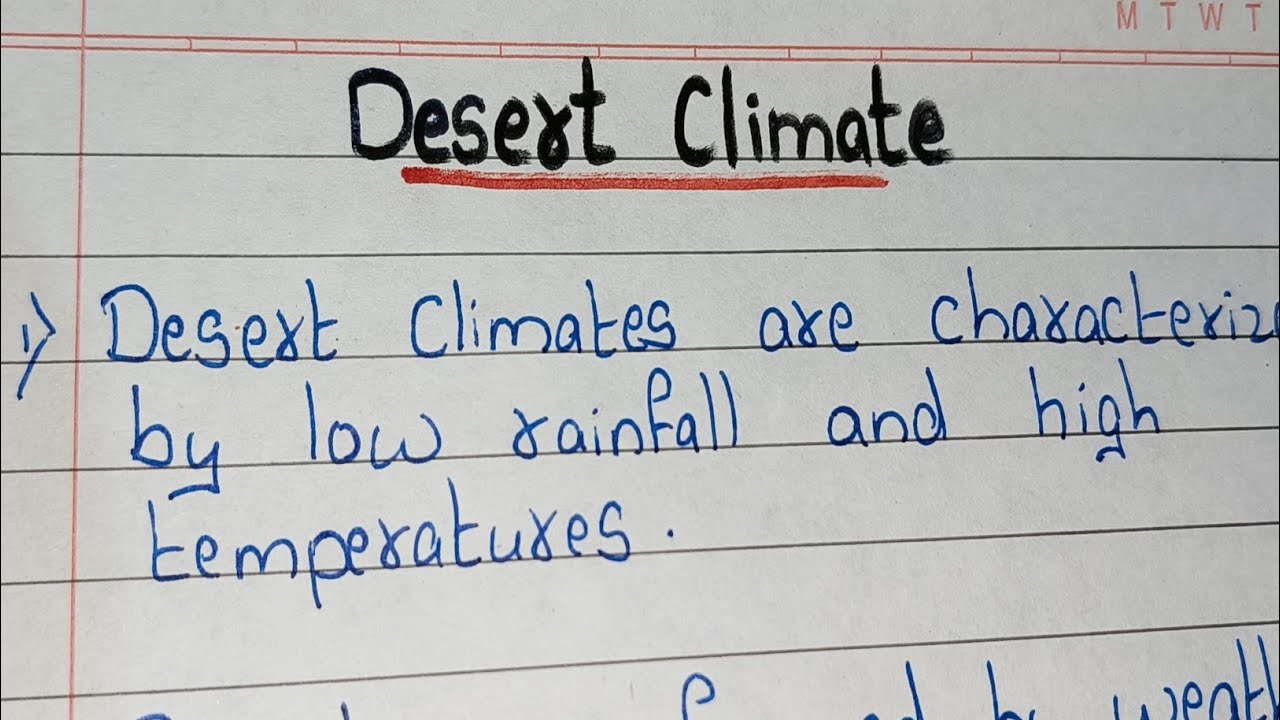 M T W T
Desert Climate
1) Desert Climates are characteriz
by low rainfall and high
temperatures.